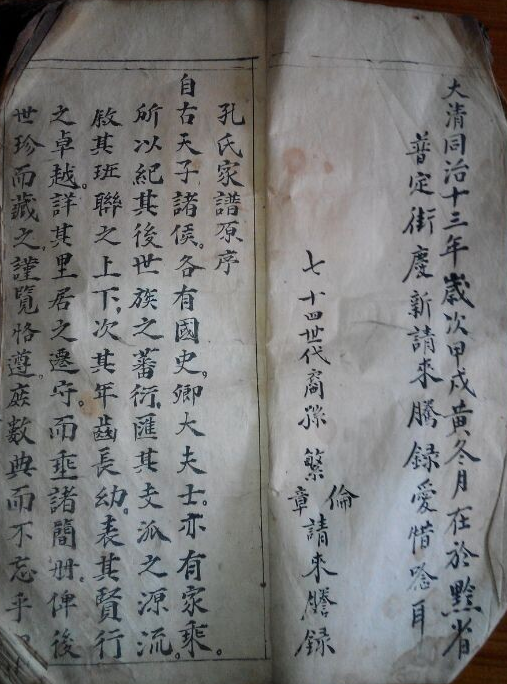 大清同治十三年歲次甲戌黃冬月在於黔省
普定街慶新請來騰録愛惜
七十四世代裔孫繁倫章請來謄録
孔氏家譜原序
自古天子諸侯。各有國史。卿大夫士。亦有家乘。
所以紀其後世族之蕃衍。匯其支派之源流。
敘其班聯之上下。次其年齒長幼。表其賢行
之卓越。詳其里居之遷守。而垂諸簡册。俾後
世珍而藏之。謹覽恪遵。庶數典而不忘乎